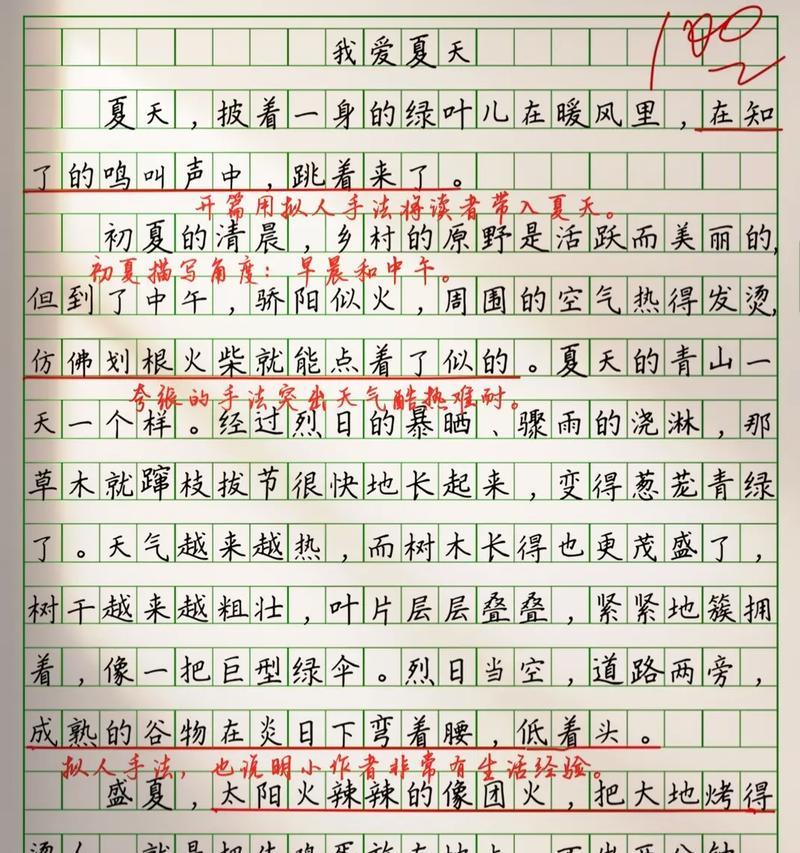 我爱夏天
100
夏天，披着一身的绿叶儿在暖风里，在知
了的鸣叫声中，跳着来了。
开篇用拟人手法将读者带入夏天。
初夏的清晨，乡村的原野是活跃而美丽的，
初夏描写角度：早晨和中午。
但到了中午，骄阳似火，周围的空气热得发烫，
仿佛划根火柴就能点着了似的。夏天的青山一
夸张的手法突出天气酷热难耐。
天一个样。经过烈日的暴晒、骤雨的浇淋，那
草木就蹿枝拔节很快地长起来，变得葱茏青绿
了。天气越来越热，而树木长得也更茂盛了，
树干越来越粗壮，叶片层层叠叠，紧紧地簇拥
着，像一把巨型绿伞。烈日当空，道路两旁，
成熟的谷物在炎日下弯着腰，低着头。
拟人手法，也说明小作者非常有生活经验。
盛夏，太阳火辣辣的像团火，把大地烤得
烫人，就是把生鸡蛋放在地上，不出五分钟